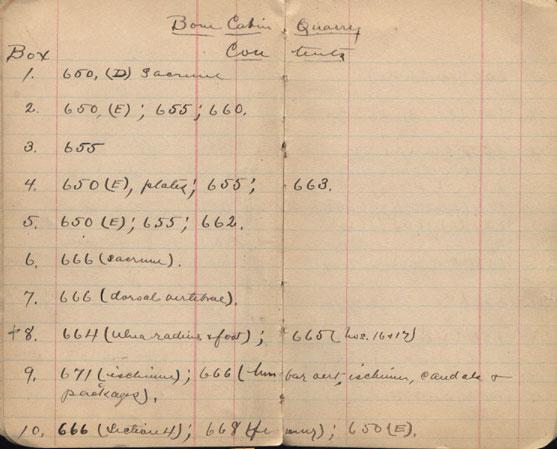 Bone Cabin Quarry
Box Contents
1. 650, (D) Sacrum
2. 650, (E); 655; 660.
3. 655
4. 650 (E), plates; 655; 663.
5. 650 (E); 655; 662.
6. 666 (sacrum).
7. 666 (dorsal vertebrae).
+8. 664 (ulna radius & foot); 665 (nos. 16+17)
9. 671 (ischium); 666 (lumbar vert, ischium, caudals &
packages).
10. 666 (Section 4); 668 (femur); 650 (E).